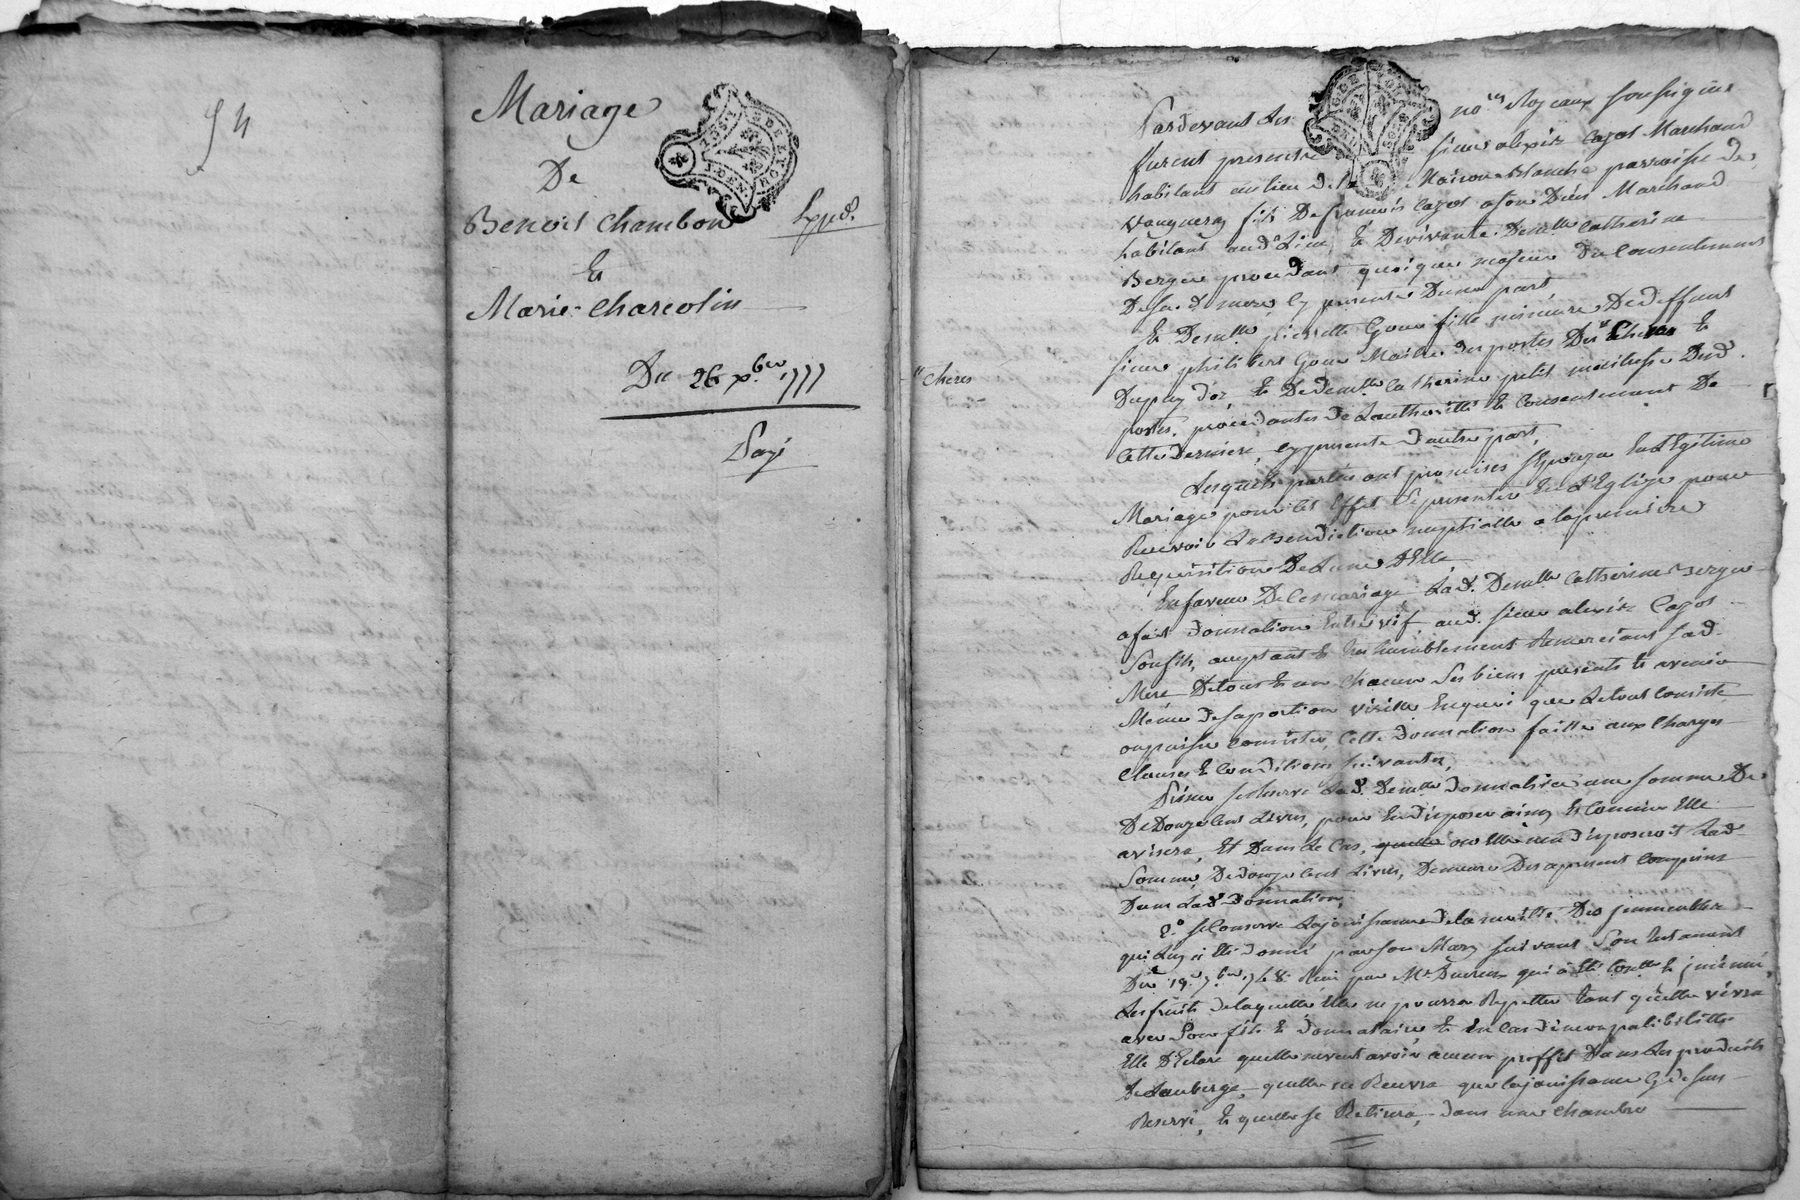 Mariage
De
Benoit Chambon
Expd.
Et
Marie Charcolin
Du 26 xbre 1777
Payé
Pardevant Les nores Royaux soussignés
furent presents sieur alexis Cayot Marchand
habitant au lieu de la Maison Blanche parroisse de
vaugneray fils De francois Cayot a son Déces Marchand
habitant aud. Lieu, Et De vivante Demelle Catherine
Berger procedant quoique majeur Du Consentement
De sad. mere Cy presente D'une part
Et Demlle pierrette Goux fille mineure De deffunt
sieur philibert Goux Maitre des postes Des Cheres Et
" Cheres
Dupuy d'or, Et De Demlle Catherine petit maitresse Desd.
postes, procedante De L'authorité Et Consentement De
Cette Derniere, Cy presente d'autre part,
Lesquels parties ont promises s'Epouzer En Légitime
Mariage pour cet Effet Se presenter En L'Eglize pour
Recevoir La Benediction nuptialle a la premiere
Requisition De L'une D'Elle
En faveur De Ce mariage Lad. Demlle Catherine Berger
a fait donnation Entrevif aud. sieur alexis Cayot
son fils, acceptant Et Tres humblement Remerciant sad.
Mere De tous Et un Chacun Ses biens presents Et avenir
Même De sa portion virille En quoi que Le tout Consiste
ou puisse Consister, Cette Donnation faitte aux Charges
Clauses Et Conditions suivantes,
Primo se Reserve Lad. Demlle Donnatrice une somme De
De Douze Cent Livres, pour En disposer ainsy Et Comme Elle
avisera, Et Dans Le Cas, ou Elle n'en disposeroit Lad.
Somme De douze Cent Livres, Demeure Des apresent Comprise
Dans Lad. Donnation,
2.o se Conserve La jouissance de la moitié Des jmmeubles
qui Luy a Eté donné par son Mary suivant Son testament
Du 19. 7bre 1768. Reçu par Me
Les fruits De laquelle Elle ne pourra Repetter tant qu'elle vivra
avec Son fils Et donnataire Et En Cas d'incompatibilitté
Elle D'Eclare qu'elle ne veut avoir aucun proffit Dans Les produits
De L'auberge, qu'elle ne Recevra que La jouissance Cy De Sus
Reservé, Et qu'elle se Retirera, dans une Chambre